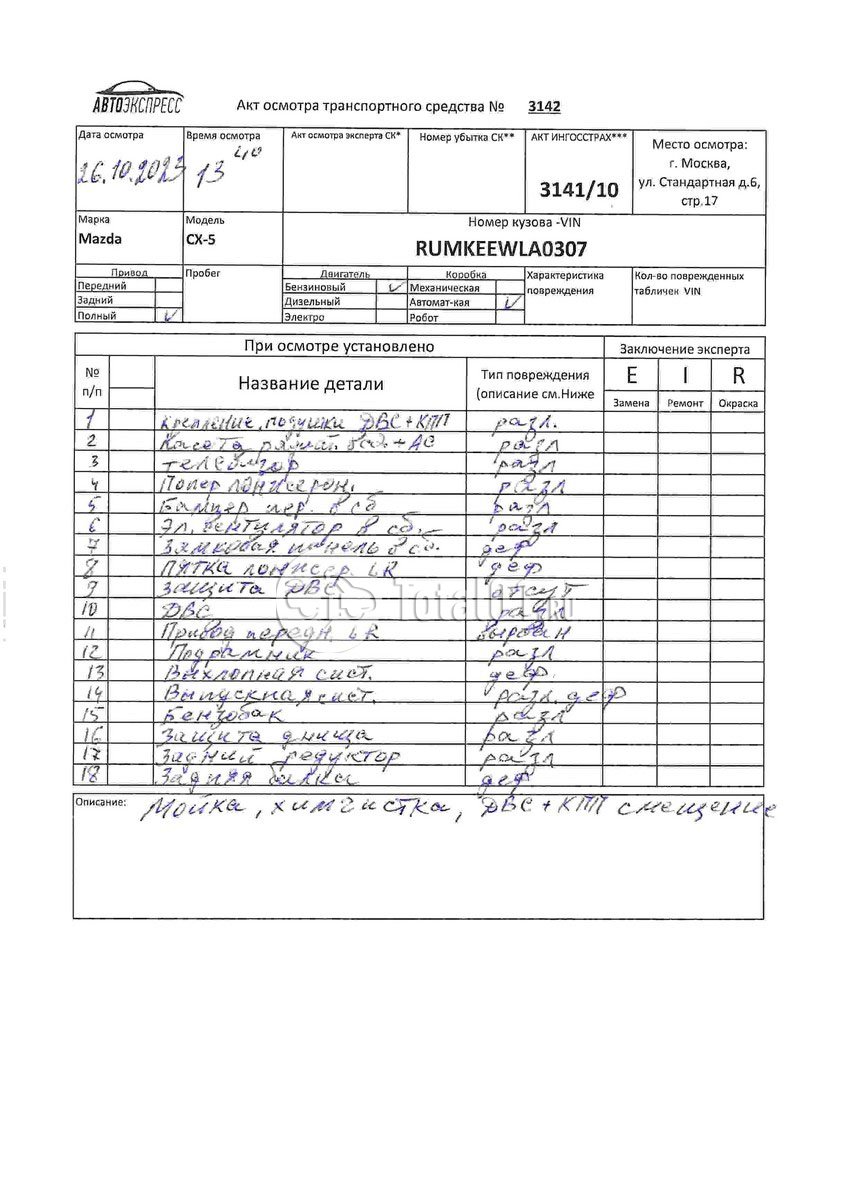 АВТОЭКСПРЕСС
Акт осмотра транспортного средства № 3142
Дата осмотра Время осмотра Акт осмотра эксперта СК* Номер убытка СК** АКТ ИНГОССТРАХ*** Место осмотра:
26.10.2023 13 40 3141/10 г. Москва,
ул. Стандартная д.6,
стр.17
Марка Модель Номер кузова -VIN
Mazda CX-5 RUMKEEWLA0307
Привод Пробег Двигатель Коробка Характеристика повреждения Кол-во поврежденных табличек VIN
Передний Бензиновый ✓ Механическая
Задний Дизельный Автомат-кая ✓
Полный ✓ Электро Робот
При осмотре установлено Заключение эксперта
№ п/п Название детали Тип повреждения (описание см.Ниже E I R
Замена Ремонт Окраска
1 крепление, подушки ДВС+КПП разл.
2 Касета в сб. + АС разл
3 телевизор разл
4 Попер лонжерон. разл
5 Бампер пер. в сб разл
6 Эл. вентулятор в сб. разл
7 Замковая панель в сб. деф
8 ПЯТКА лонжер. LR деф
9 защита ДВС отсут
10 ДВС разл
11 Привод передн. LR вырван
12 Подрамник разл
13 Выхлопная сист. деф
14 Выпускная сист. разл. деф
15 Бензобак разл
16 Защита днища разл
17 Задний редуктор разл
18 Задняя балка деф
Описание: Мойка, химчистка, ДВС+КПП смещение
TotalO1.RU